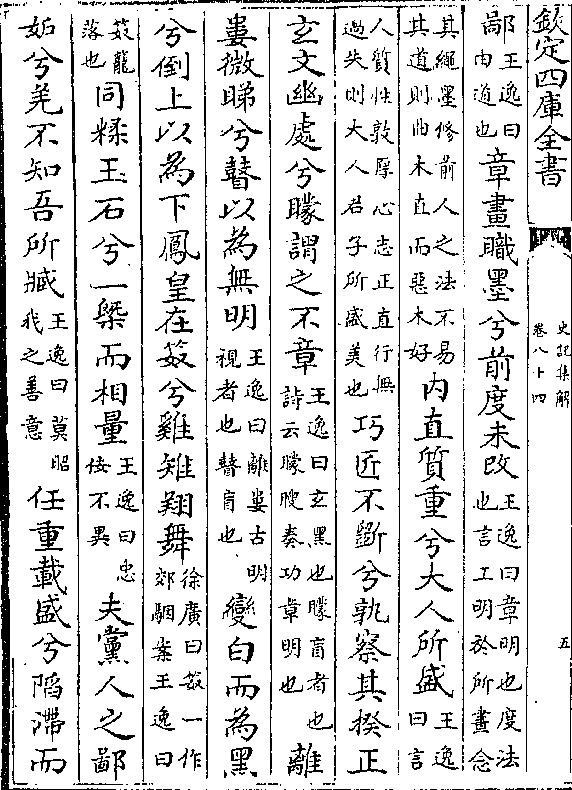 欽定四庫全書
史記集解
卷八十四
五
鄙王逸曰由道也章畫職墨兮前度未改王逸曰章明也度法也言工明於所畫念
其繩墨修前人之法不易其道則曲木直而惡木好內直質重兮大人所盛王逸曰言
人質性敦厚心志正直行無過失則大人君子所盛美也巧匠不斵兮孰察其揆正
玄文幽處兮矇謂之不章王逸曰玄黑也矇盲者也詩云矇瞍奏功章明也離
婁微睇兮瞽以為無明王逸曰離婁古明視者也瞽盲也變白而為黑
兮倒上以為下鳳皇在笯兮雞雉翔舞徐廣曰笯一作郊駰案王逸曰
笯籠落也同糅玉石兮一槩而相量王逸曰忠佞不異夫黨人之鄙
妬兮羌不知吾所臧王逸曰莫昭我之善意任重載盛兮陷滯而